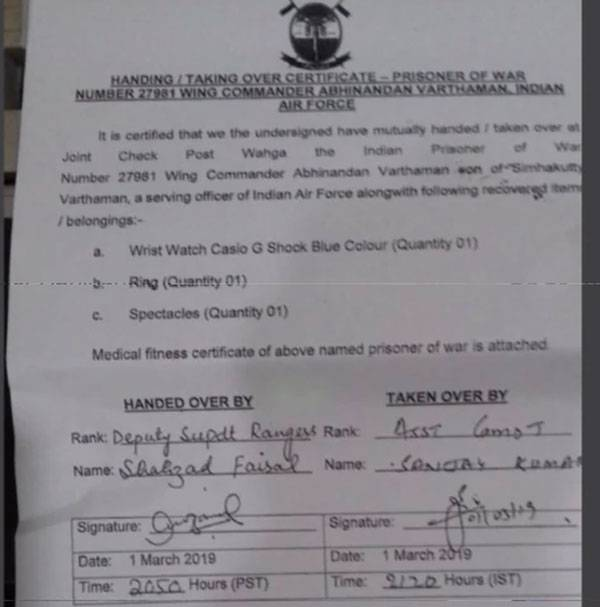 HANDING / TAKING OVER CERTIFICATE – PRISONER OF WAR
NUMBER 27981 WING COMMANDER ABHINANDAN VARTHAMAN, INDIAN
AIR FORCE
It is certified that we the undersigned have mutually handed / taken over at
Joint Check Post Wahga the Indian Prisoner of War
Number 27981 Wing Commander Abhinandan Varthaman son of Simhakutty
Varthaman, a serving officer of Indian Air Force alongwith following recovered items
/ belongings:-
a. Wrist Watch Casio G Shock Blue Colour (Quantity 01)
b. Ring (Quantity 01)
c. Spectacles (Quantity 01)
Medical fitness certificate of above named prisoner of war is attached.
HANDED OVER BY TAKEN OVER BY
Rank: Deputy Supdt Rangers Rank: Asst Comdt
Name: Shahzad Faisal Name: SANJAY KUMAR
Signature: Signature: 01/03/19
Date: 1 March 2019 Date: 1 March 2019
Time: 2050 Hours (PST) Time: 2120 Hours (IST)